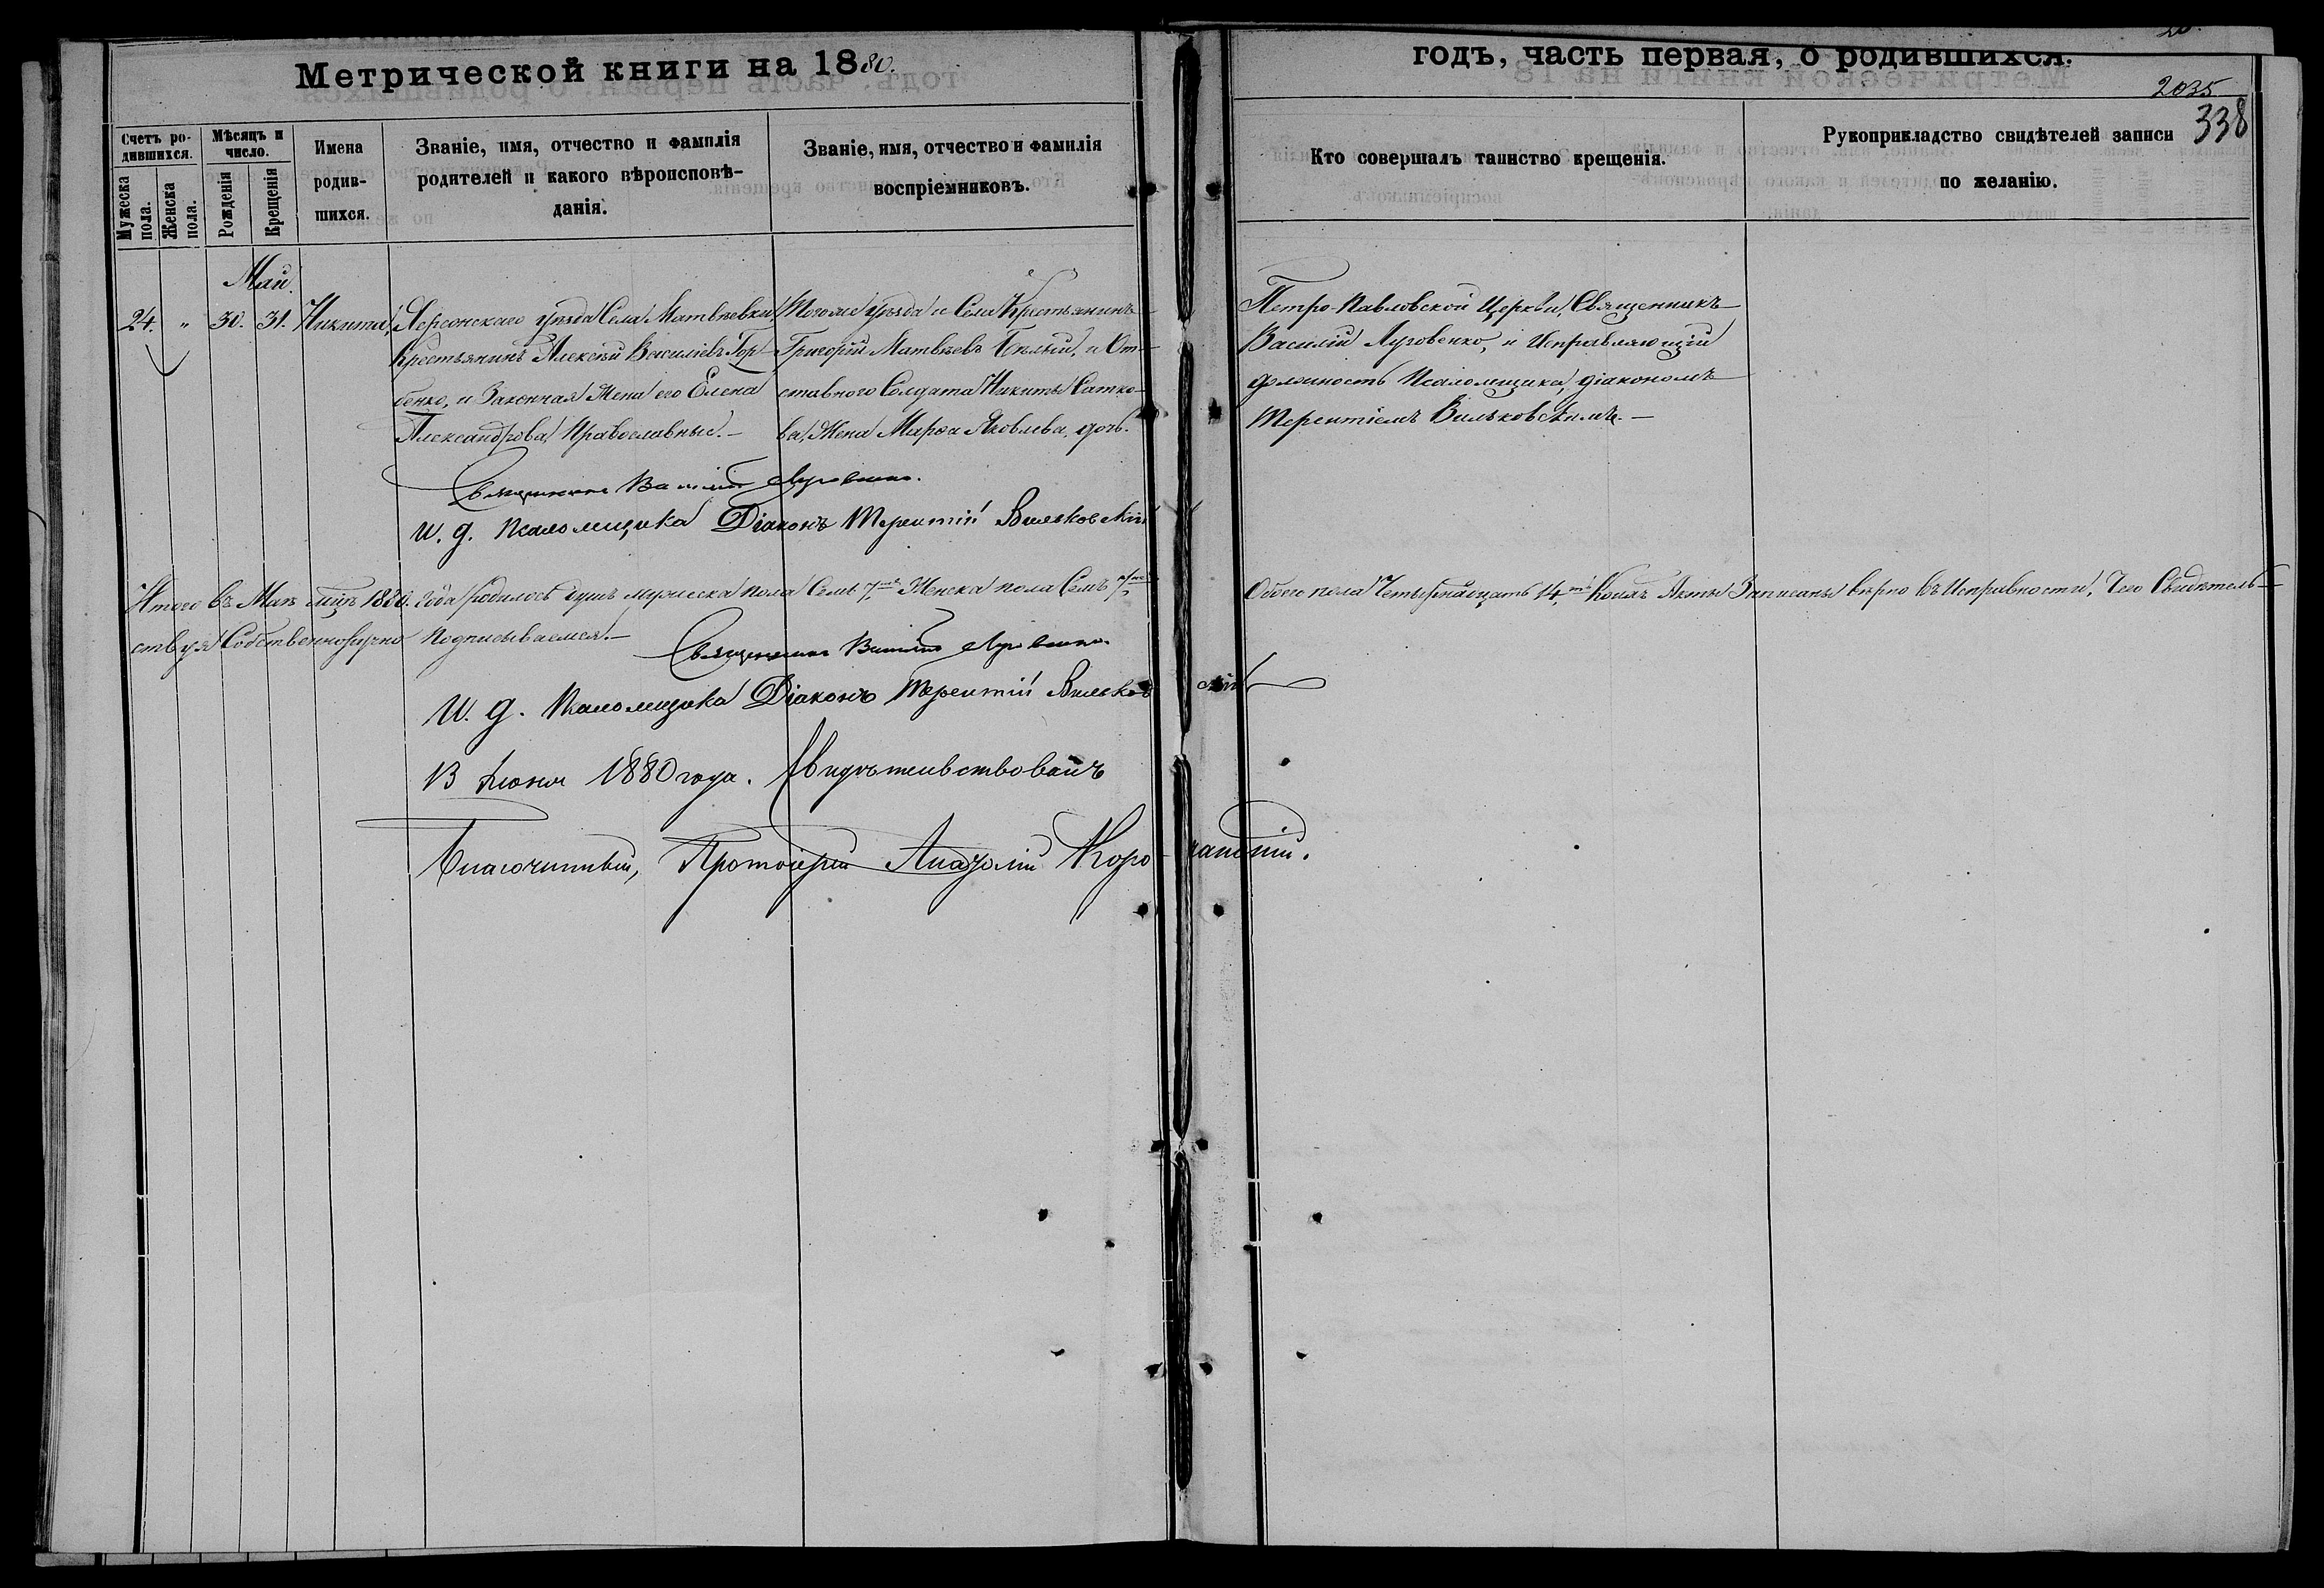 Метрической книги на 1880.
годъ, часть первая, о родившихся.
2035
338
Счетъ ро-
дившихся.
Мужеска пола.
Женска пола.
Мѣсяцъ и
число.
Рожденія
Крещенія
Имена
родив-
шихся.
Званіе, имя, отчество и фамилія
родителей и какого вѣроисповѣ-
данія.
Званіе, имя, отчество и фамилія
воспріемниковъ.
Кто совершалъ таинство крещенія.
Рукоприкладство свидѣтелей записи
по желанію.
Май.
24. " 30. 31. Никита,
Херсонскаго уѣзда Села Матвѣевки,
Крестьянинъ Алексѣй Василіевъ Гор-
бенко, и Законная Жена его Елена
Александрова, Православные.-
Тогоже уѣзда и Села Крестьянинъ
Григорій Матвѣевъ Бѣлый, и От-
ставного Солдата Никиты Сатко-
ва, Жена Марѳа Яковлева дочь.
Петро-Павловской Церкви, Священникъ
Василій Луговенко, и Исправляющій
должность Псаломщика, діакономъ
Терентіемъ Вильковскимъ.-
Священникъ Василій Луговенко.
И. д. Псаломщика Діаконъ Терентій Вильковскій
Итого въ Маѣ м̃цѣ 1880. года родилось душъ мужеска пола Семь 7, Женска пола Семь 7,
Обоего пола Четырнадцать 14, Коихъ Акты Записаны вѣрно въ Исправности, Чего Свидѣтель-
ствуя Собственноручно Подписываемся.-
Священникъ Василій Луговенко.
И. д. Псаломщика Діаконъ Терентій Вильковскій
13 Іюня 1880 года. Свидѣтельствовалъ
Благочинный, Протоіерей Анатолій